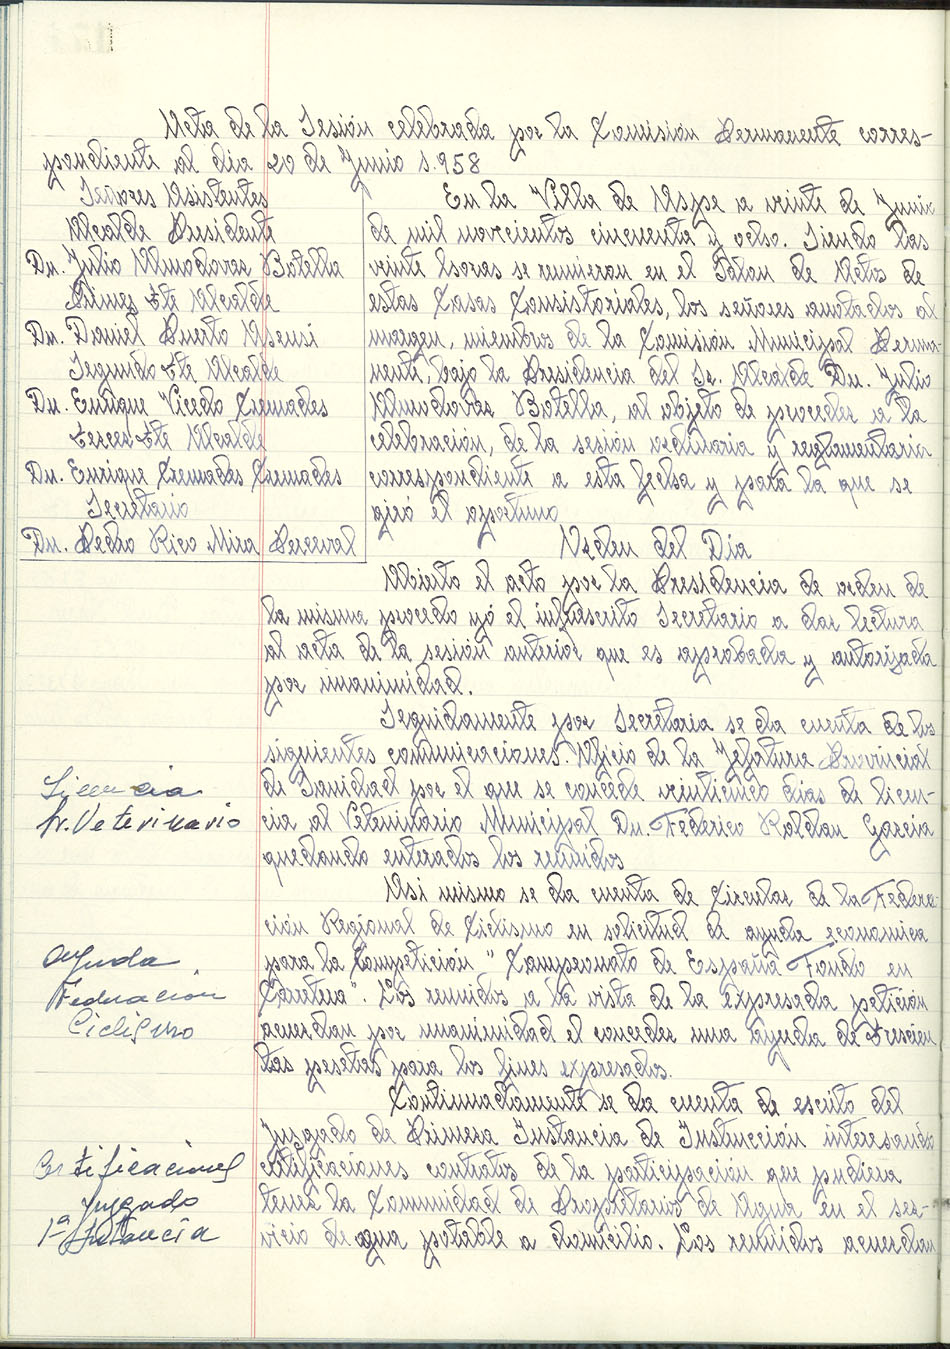 Acta de la Sesión celebrada por la Comisión Permanente corres-
pondiente al dia 20 de Junio 1.958
Señores Asistentes
Alcalde Presidente
Dn. Julio Almodovar Botella
Primer Tte Alcalde
Dn. Daniel Puerto Asensi
Segundo Tte Alcalde
Dn. Enrique Vicedo Cremades
Tercer Tte Alcalde
Dn. Enrique Cremades Cremades
Secretario
Dn. Pedro Rico Mira Perceval
En la Villa de Aspe a veinte de Junio
de mil novecientos cincuenta y ocho. Siendo las
veinte horas se reunieron en el Salon de Actos de
estas Casas Consistoriales, los señores anotados al
margen, miembros de la Comisión Municipal Perma-
nente, bajo la Presidencia del Sr. Alcalde Dn. Julio
Almodovar Botella, al objeto de proceder a la
celebración, de la sesión ordinaria y reglamentaria
correspondiente a esta fecha y para la que se
fijó el oportuno
Orden del Dia
Abierto el acto por la Presidencia de orden de
la misma procedo yó el infrascrito Secretario a dar lectura
al acta de la sesión anterior que es aprobada y autorizada
por unanimidad.
Seguidamente por Secretaria se da cuenta de los
siguientes comunicaciones. Oficio de la Jefatura Provincial
de Sanidad por el que se concede veinticinco dias de licen-
cia al Veterinario Municipal Dn. Federico Roldan Garcia
quedando enterados los reunidos
Asi mismo se da cuenta de Circular de la Federa-
ción Regional de Ciclismo en solicitud de ayuda economica
para la Competición " Campeonato de España Fondo en
Carretera". Los reunidos a la vista de la expresada petición
acuerdan por unanimidad el conceder una ayuda de trescien
tas pesetas para los fines expresados.
Continuadamente se da cuenta de escrito del
Juzgado de Primera Instancia de Instrucción interesando
certificaciones contratos de la participación que pudiera
tener la Comunidad de Propietarios de Agua en el ser-
vicio de agua potable a domicilio. Los reunidos acuerdan
Licencia
Sr. Veterinario
Ayuda
Federación
Ciclismo
Certificaciones
Juzgado
1ª Instancia